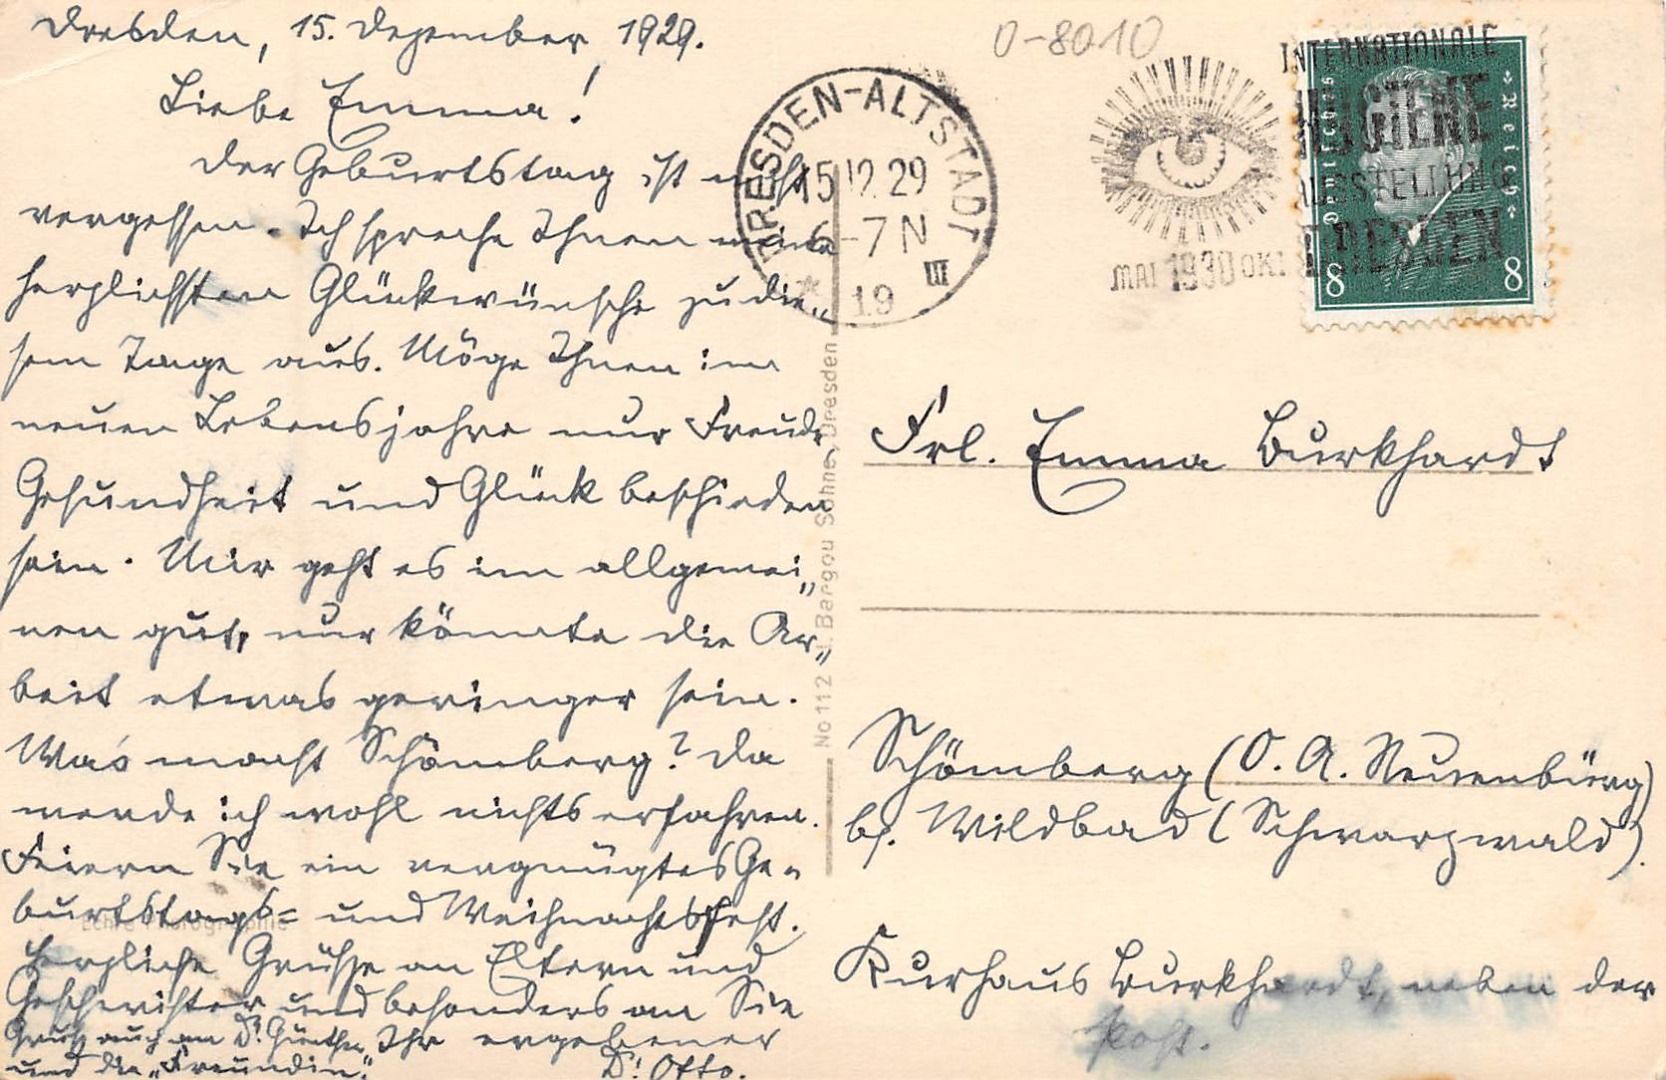 Dresden, 15. Dezember, 1929.
Liebe Emma!
Der Geburtstag ist nicht
vergessen. Ich spreche Ihnen meine
herzlichsten Glückwünsche zu die„
sem Tage aus. Möge Ihnen im
neuen Lebensjahre nur Freude
Gesundheit und Glück beschieden
sein. Mir geht es im allgemei„
nen gut, nur könnte die Ar„
beit etwas geringer sein.
Was macht Schömberg? Da
werde ich wohl nichts erfahren.
Feiern Sie ein vergnügtes Ge„
burtstags= und Weihnachtsfest.
Herzliche Grüsse an Eltern und
Geschwister und besonders an Sie
Ihr ergebener
Dr. Otto.
Gruß auch an Dr. Günther
und die „Freundin“.
Echte Photographie
No 112 Bargou Söhne, Dresden
O-8010
DRESDEN-ALTSTADT
15.12.29
6-7 N
* 19 III
MAI 1930 OKT
INTERNATIONALE
HYGIENE
AUSSTELLUNG
DRESDEN
Deutsches Reich
8 8
Frl. Emma Burkhardt
Schömberg (O. A. Neuenbürg)
b/. Wildbad (Schwarzwald).
Kurhaus Burkhardt, neben der
Post.